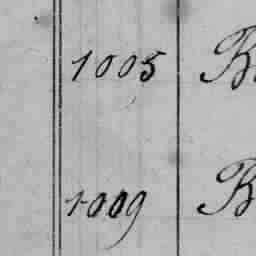 1005 B
1009 B